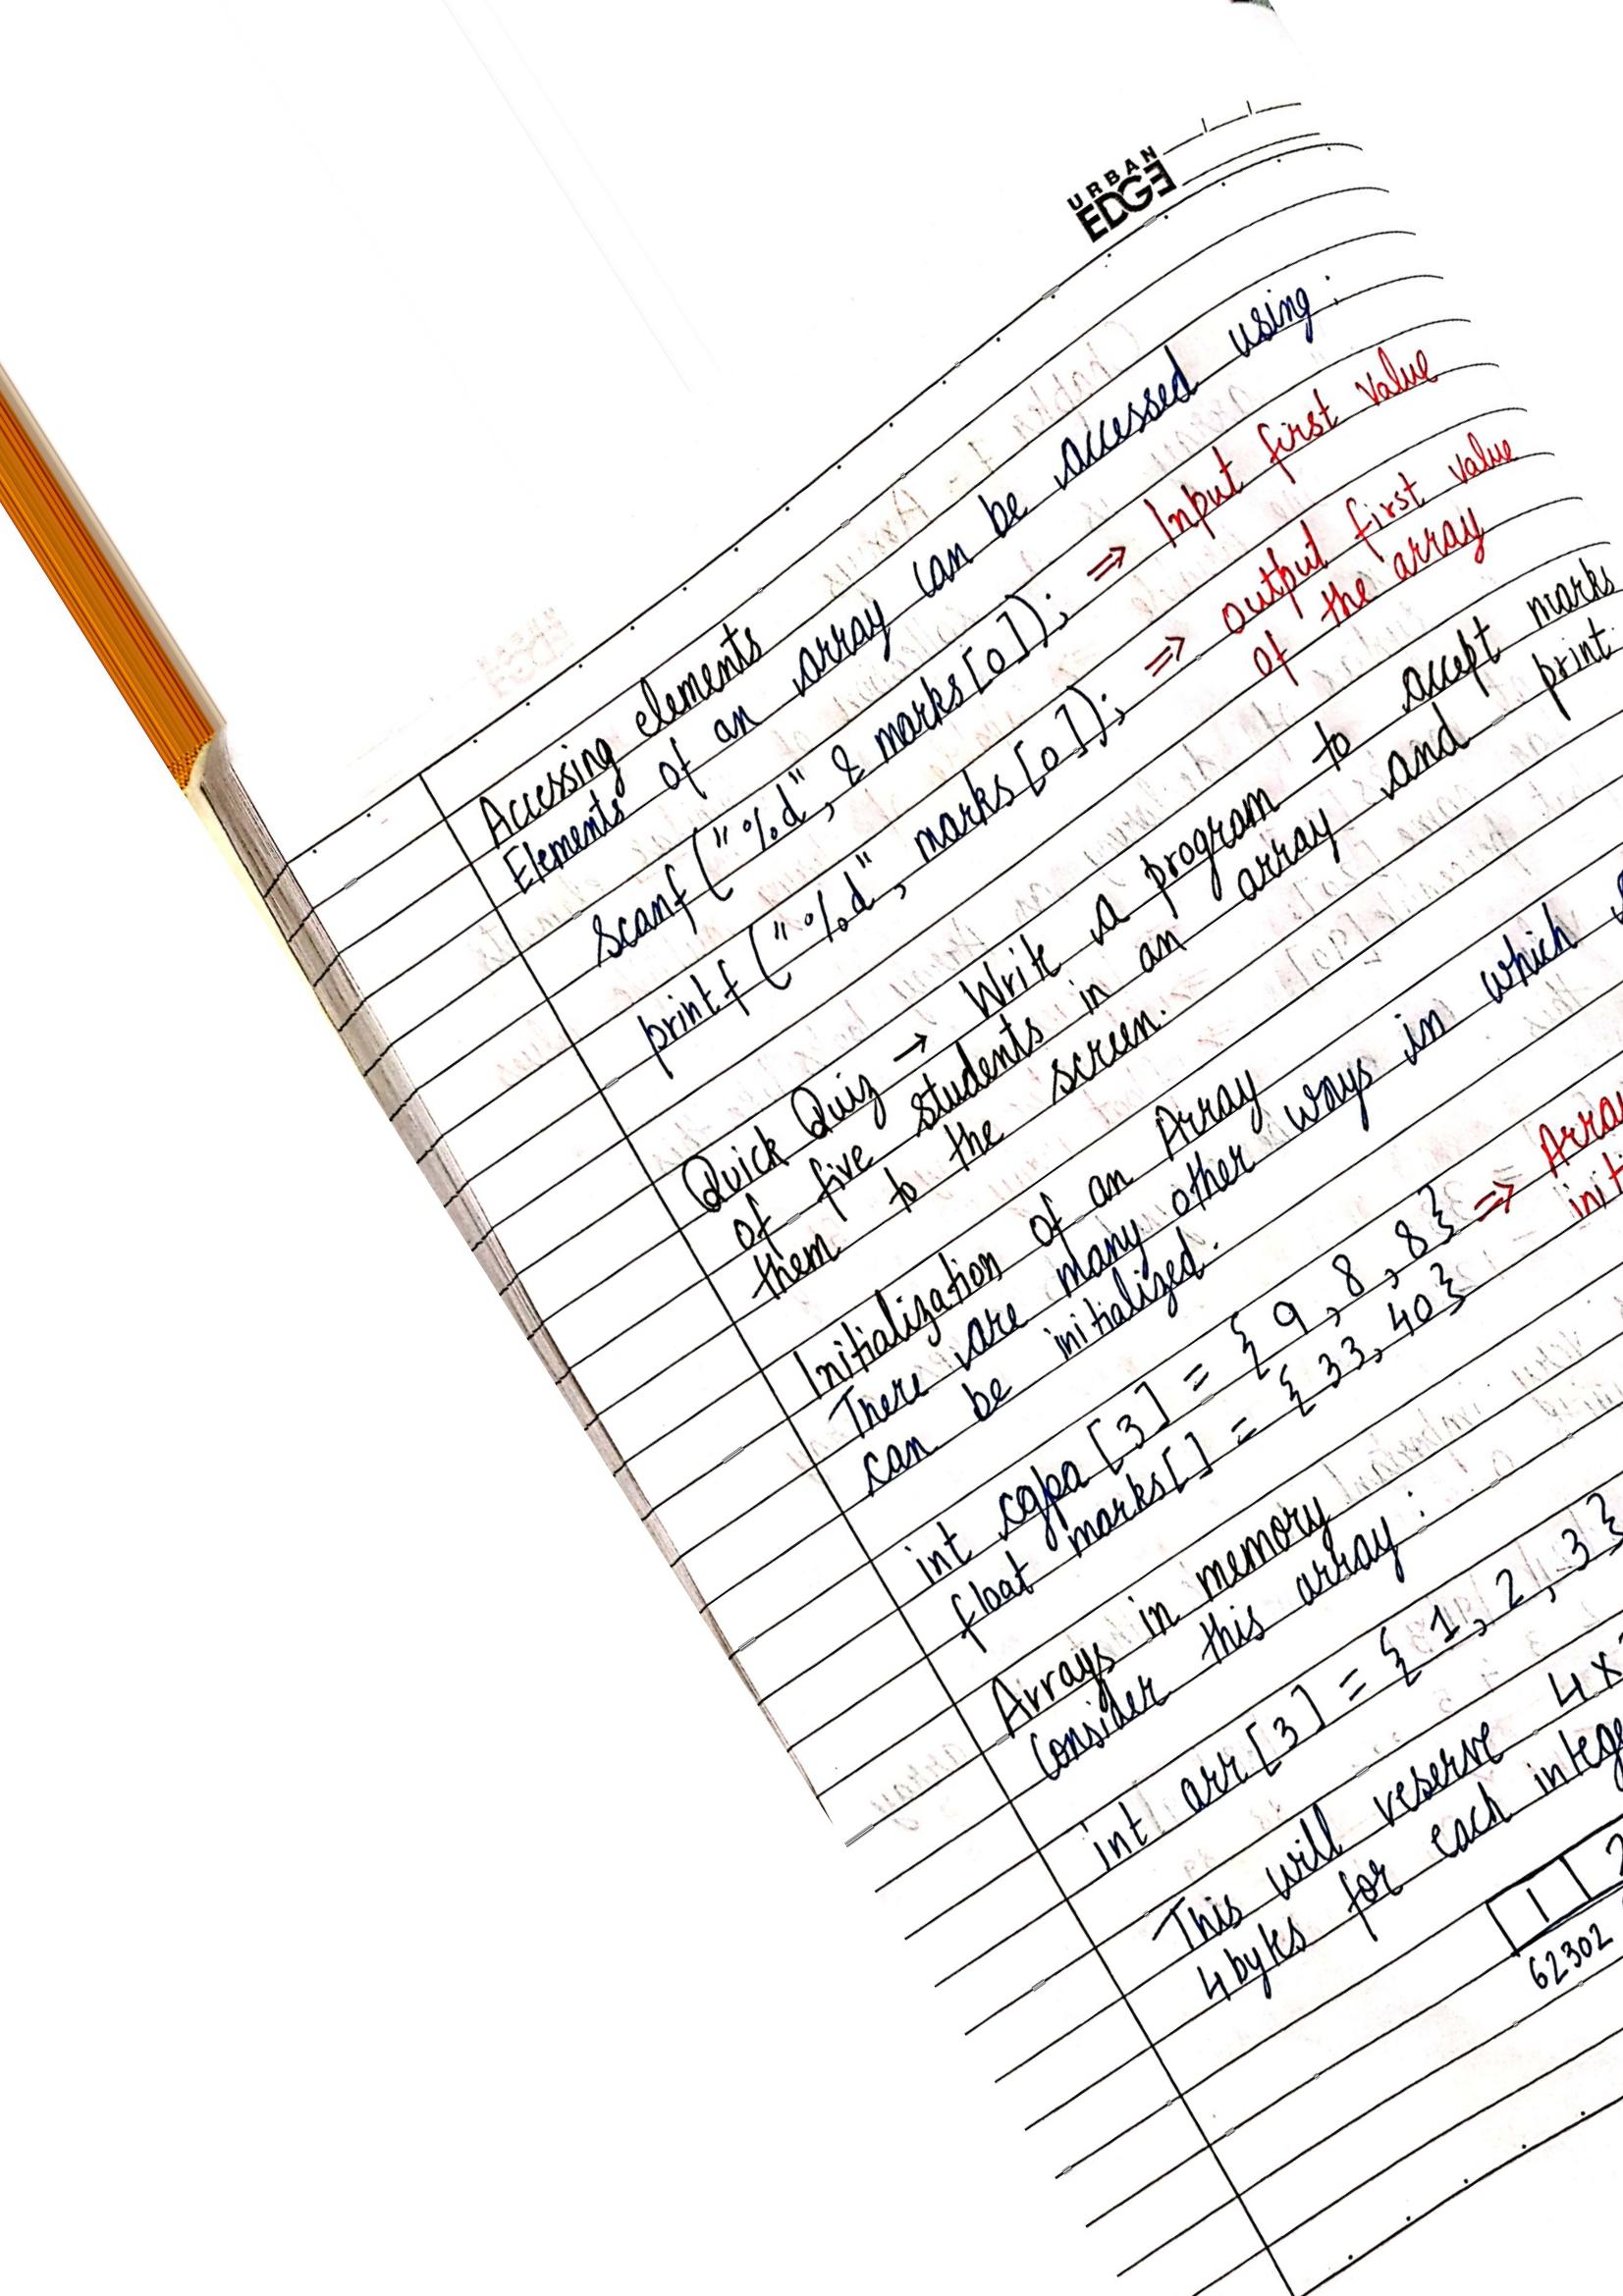 URBAN
EDGE
Accessing elements
Elements of an array can be accessed using:
scanf ("%d", & marks[0]); ⇒ Input first value
printf ("%d", marks[0]); ⇒ output first value
of the array
Quick Quiz → Write a program to accept marks
of five students in an array and print
them to the screen.
Initialization of an Array
There are many other ways in which
can be initialized.
int cgpa[3] = { 9, 8, 8} ⇒
float marks[] = { 33, 40}
Arrays in memory
Consider this array:
int arr[3] = { 1, 2, 3 }
This will reserve 4x
4 bytes for each
1 2
62302